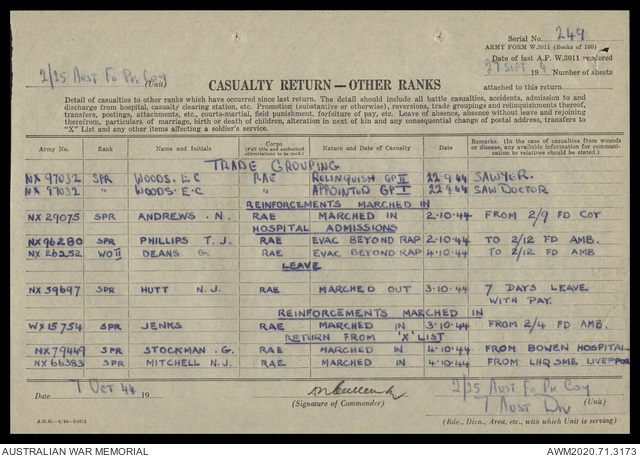 Serial No. 249
ARMY FORM W.3011 (Books of 100)
Date of last A.F. W.3011 rendered
27 SEPT 19 Number of sheets
attached to this return
2/25 AUST FD PK COY (Unit)
CASUALTY RETURN—OTHER RANKS
Detail of casualties to other ranks which have occurred since last return. The detail should include all battle casualties, accidents, admission to and
discharge from hospital, casualty clearing station, etc. Promotion (substantive or otherwise), reversions, trade groupings and relinquishments thereof,
transfers, postings, attachments, etc., courts-martial, field punishment, forfeiture of pay, etc. Leave of absence, absence without leave and rejoining
therefrom, particulars of marriage, birth or death of children, alteration in next of kin and any consequential change of postal address, transfers to
"X" List and any other items affecting a soldier's service.
Army No. Rank Name and Initials Corps (Full title and authorised abbreviations to be used.) Nature and Date of Casualty Date Remarks. (In the case of casualties from wounds or disease, any available information for communication to relatives should be stated.)
TRADE GROUPING
NX 97032 SPR WOODS. E.C RAE RELINQUISH GP II 22-9-44 SAWYER.
NX 97032 " WOODS. E.C " APPOINTED GP I 22-9-44 SAW DOCTOR
REINFORCEMENTS MARCHED IN
NX 29075 SPR ANDREWS. N. RAE MARCHED IN 2-10-44 FROM 2/9 FD COY
HOSPITAL ADMISSIONS
NX 96280 SPR PHILLIPS T. J. RAE EVAC BEYOND RAP 2-10-44 TO 2/12 FD AMB.
NX 26252 WO II DEANS G. RAE EVAC BEYOND RAP 4-10-44 TO 2/12 FD AMB
LEAVE
NX 39697 SPR HUTT N.J. RAE MARCHED OUT 3-10-44 7 DAYS LEAVE
WITH PAY.
REINFORCEMENTS MARCHED IN
WX 15754 SPR JENKS RAE MARCHED IN 3-10-44 FROM 2/4 FD AMB.
RETURN FROM 'X' LIST
NX 79449 SPR STOCKMAN. G. RAE MARCHED IN 4-10-44 FROM BOWEN HOSPITAL
NX 66383 SPR MITCHELL N.J. RAE MARCHED IN 4-10-44 FROM LHQ SME LIVERPOOL
Date 7 OCT 44 19
(Signature of Commander)
2/25 AUST FD PK COY (Unit)
7 AUST DIV
(Bde., Divn., Area, etc., with which Unit is serving)
AUSTRALIAN WAR MEMORIAL
AWM2020.71.3173